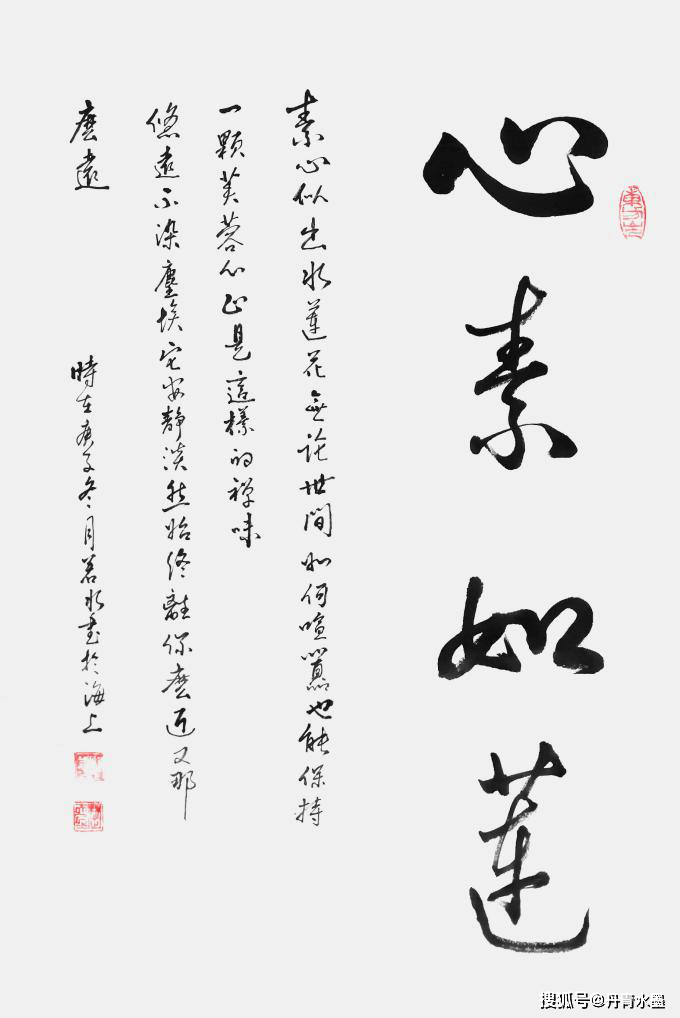 心素如蓮
素心似出水蓮花無論世間如何喧囂也能保持
一顆芙蓉心正是這樣的禪味
悠遠不染塵埃它安静淡然始終離你麽近又那
麽遠
時在庚子冬月若水書於海上
搜狐号@丹青水墨